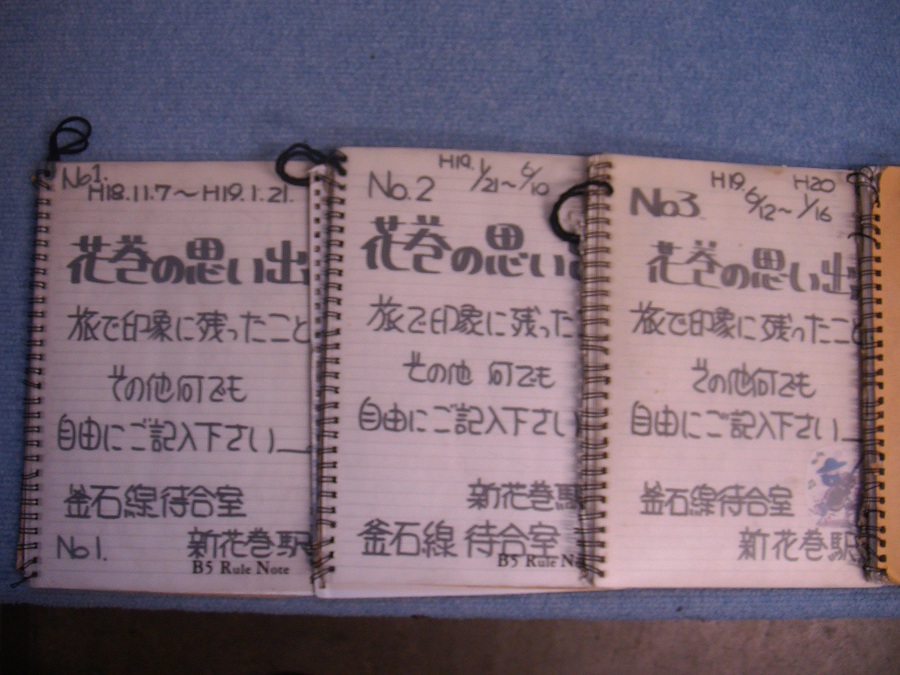 No1.
H18.11.7～H19.1.21.
花巻の思い出
旅で印象に残ったこと
その他何でも
自由にご記入下さい
釜石線待合室
No1. 新花巻駅
B5 Rule Note
No.2 H19. 1/21～6/10
花巻の思い
旅で印象に残った
その他 何でも
自由にご記入下さい
新花巻駅
釜石線 待合室
B5 Rule
No3. H19. 6/12～H20 1/16
花巻の思い出
旅で印象に残ったこと
その他何でも
自由にご記入下さい
釜石線待合室
新花巻駅